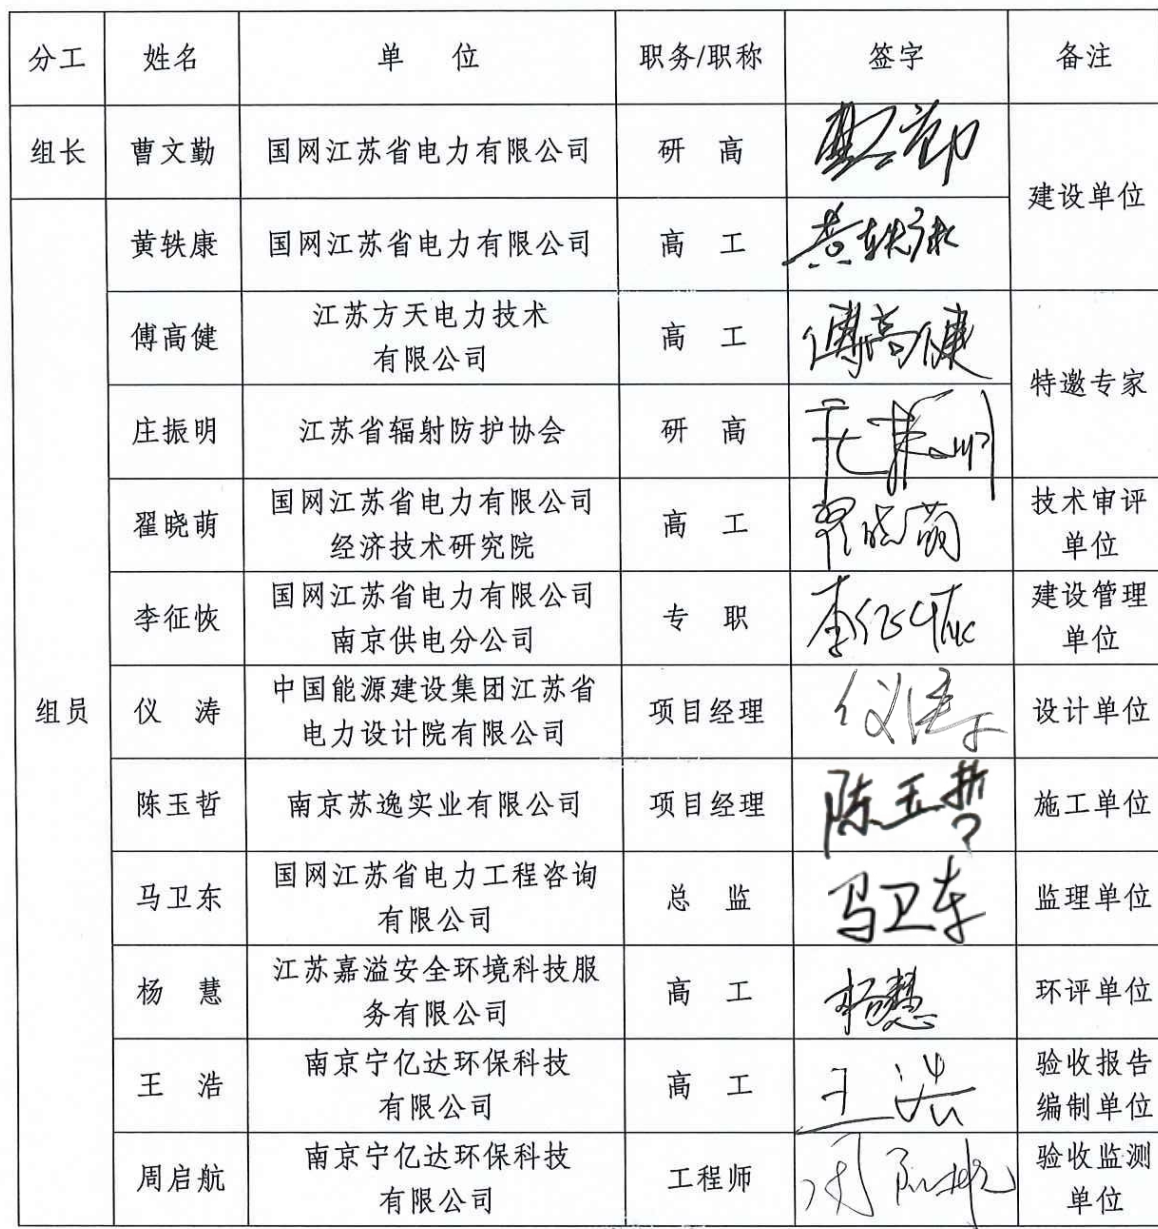 分工 姓名 单 位 职务/职称 签字 备注
组长 曹文勤 国网江苏省电力有限公司 研 高 曹文勤
建设单位
黄轶康 国网江苏省电力有限公司 高 工 黄轶康
傅高健 江苏方天电力技术
有限公司 高 工 傅高健
特邀专家
庄振明 江苏省辐射防护协会 研 高 庄振明
翟晓萌 国网江苏省电力有限公司
经济技术研究院 高 工 翟晓萌 技术审评
单位
李征恢 国网江苏省电力有限公司
南京供电分公司 专 职 李征恢 建设管理
单位
组员
仪 涛 中国能源建设集团江苏省
电力设计院有限公司 项目经理 仪涛 设计单位
陈玉哲 南京苏逸实业有限公司 项目经理 陈玉哲 施工单位
马卫东 国网江苏省电力工程咨询
有限公司 总 监 马卫东 监理单位
杨 慧 江苏嘉溢安全环境科技服
务有限公司 高 工 杨慧 环评单位
王 浩 南京宁亿达环保科技
有限公司 高 工 王浩 验收报告
编制单位
周启航 南京宁亿达环保科技
有限公司 工程师 周启航 验收监测
单位